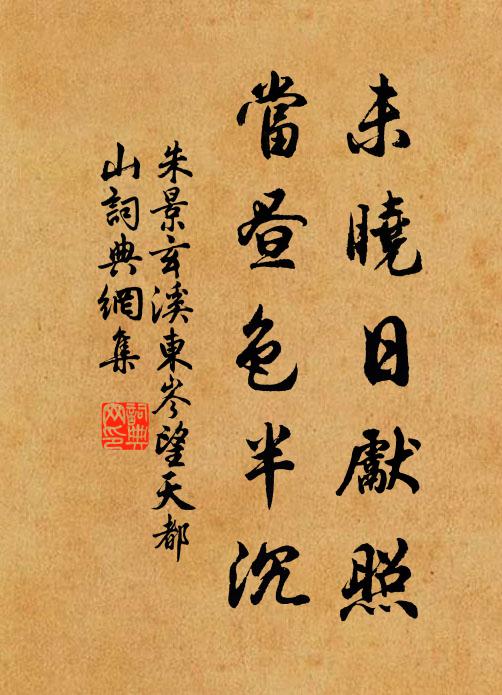 未曉日獻照
當晝色半沉
朱景玄溪東岑望天都
山詞典網集
詞典
网印